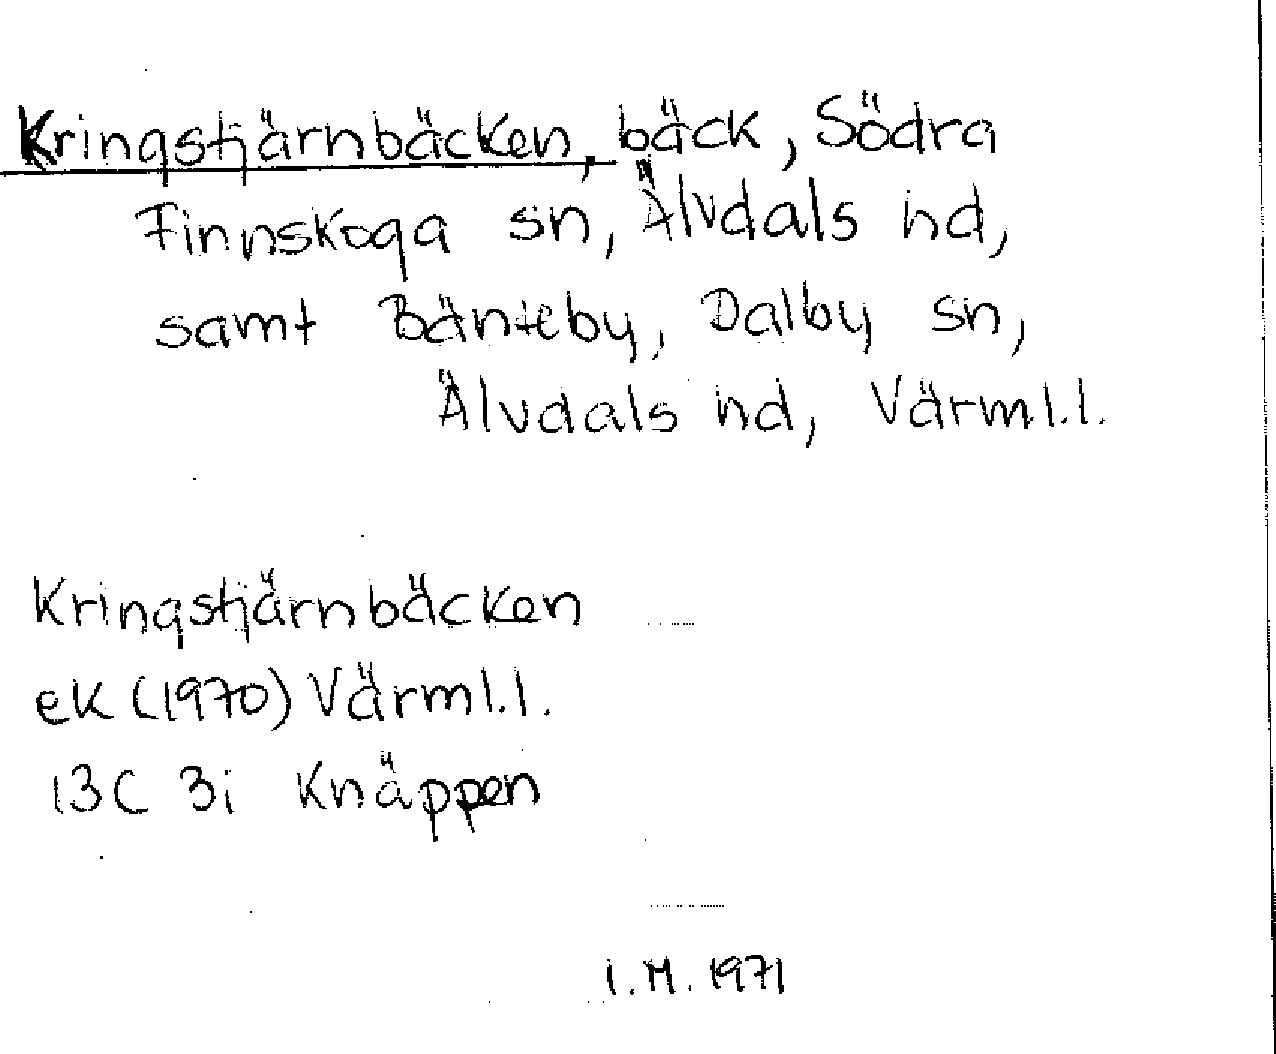 Kringstjärnbäcken, bäck, Södra
Finnskoga sn, Älvdals hd,
samt Bänteby, Dalby sn,
Älvdals hd, Värml.l.
Kringstjärnbäcken
ek (1970) Värml.l.
13C 3i Knäppen
I.M. 1971